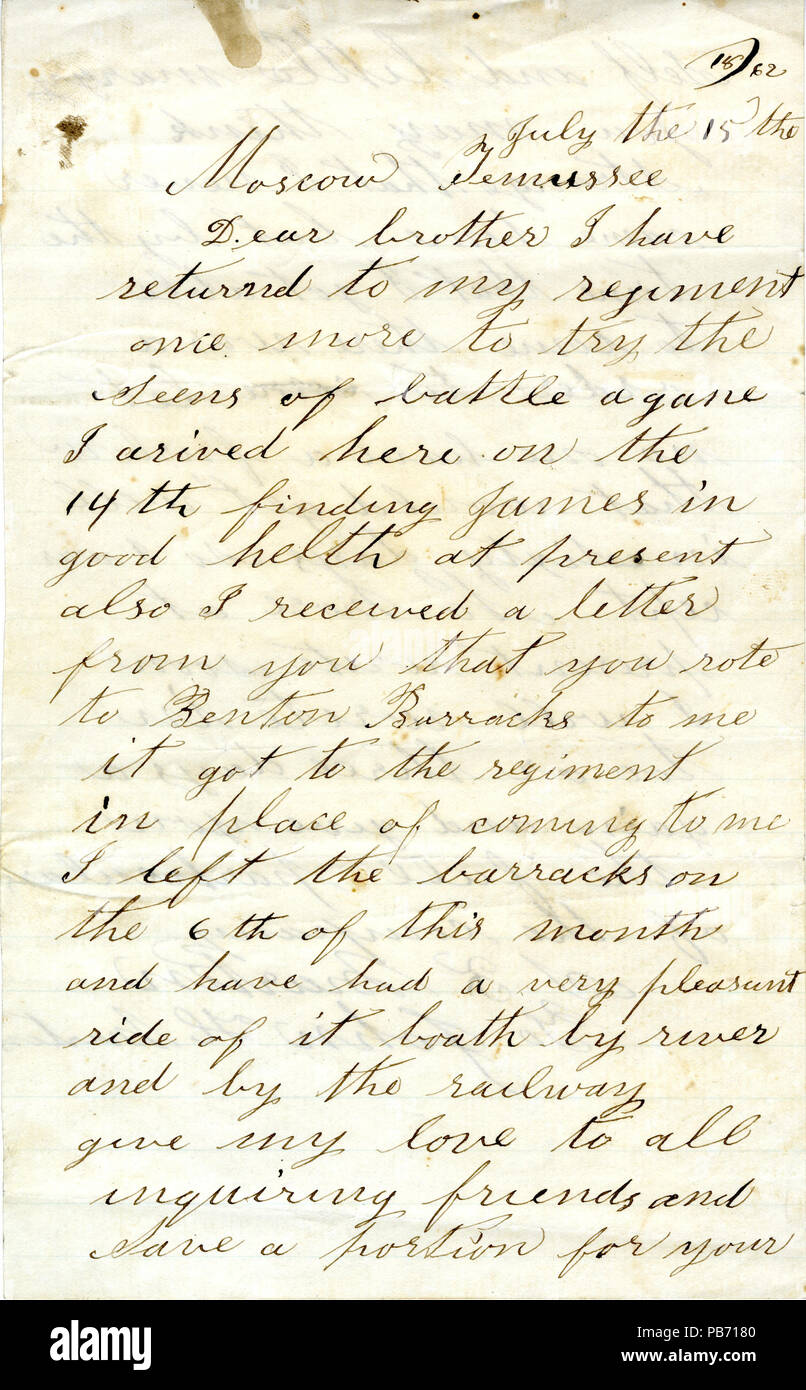 18)62
July the 15 the
Moscow Tennussee
Dear brother I have
returnd to my regiment
once more to try the
seens of battle agane
I arived here on the
14th finding James in
good helth at present
also I received a letter
from you that you rote
to Benton Barracks to me
it got to the regiment
in place of coming to me
I left the barracks on
the 6th of this month
and have had a very pleasant
ride of it boath by river
and by the railway
give my love to all
inquiring friends and
save a portion for your
alamy
Image ID: PB7180
www.alamy.com